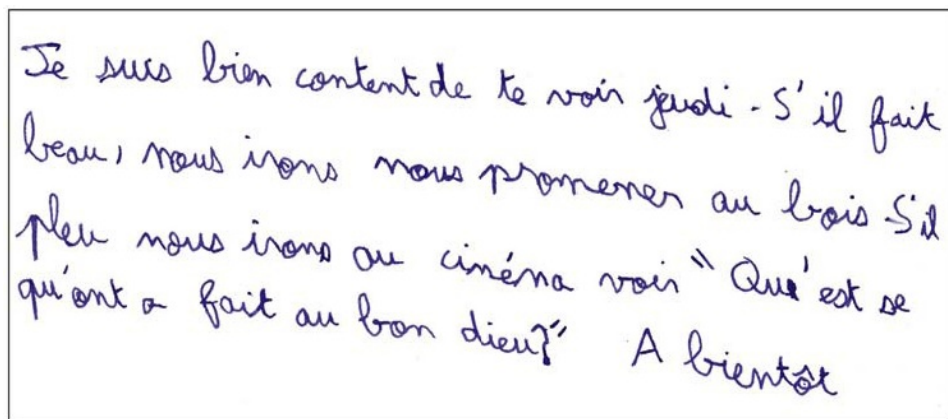 Je suis bien content de te voir jeudi - S'il fait
beau, nous irons nous promener au bois - S'il
pleu nous irons au cinéma voir " Qu'est se
qu'ont a fait au bon dieu?" A bientôt